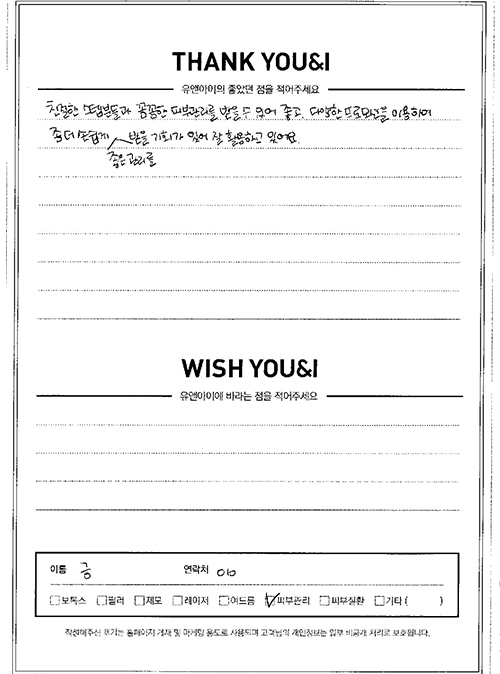 THANK YOU&I
유앤아이의 좋았던 점을 적어주세요
친절한 스탭분들과 꼼꼼한 피부관리를 받을 수 있어 좋고, 다양한 프로모션을 이용하여
좀 더 손쉽게 받을 기회가 있어 잘 활용하고 있어요.
좋은 관리를
WISH YOU&I
유앤아이에 바라는 점을 적어주세요
이름 금 연락처 010
보톡스 필러 제모 레이저 여드름 피부관리 피부질환 기타 ( )
작성해주신 후기는 홈페이지 게재 및 마케팅 용도로 사용되며 고객님의 개인정보는 일부 비공개 처리로 보호됩니다.